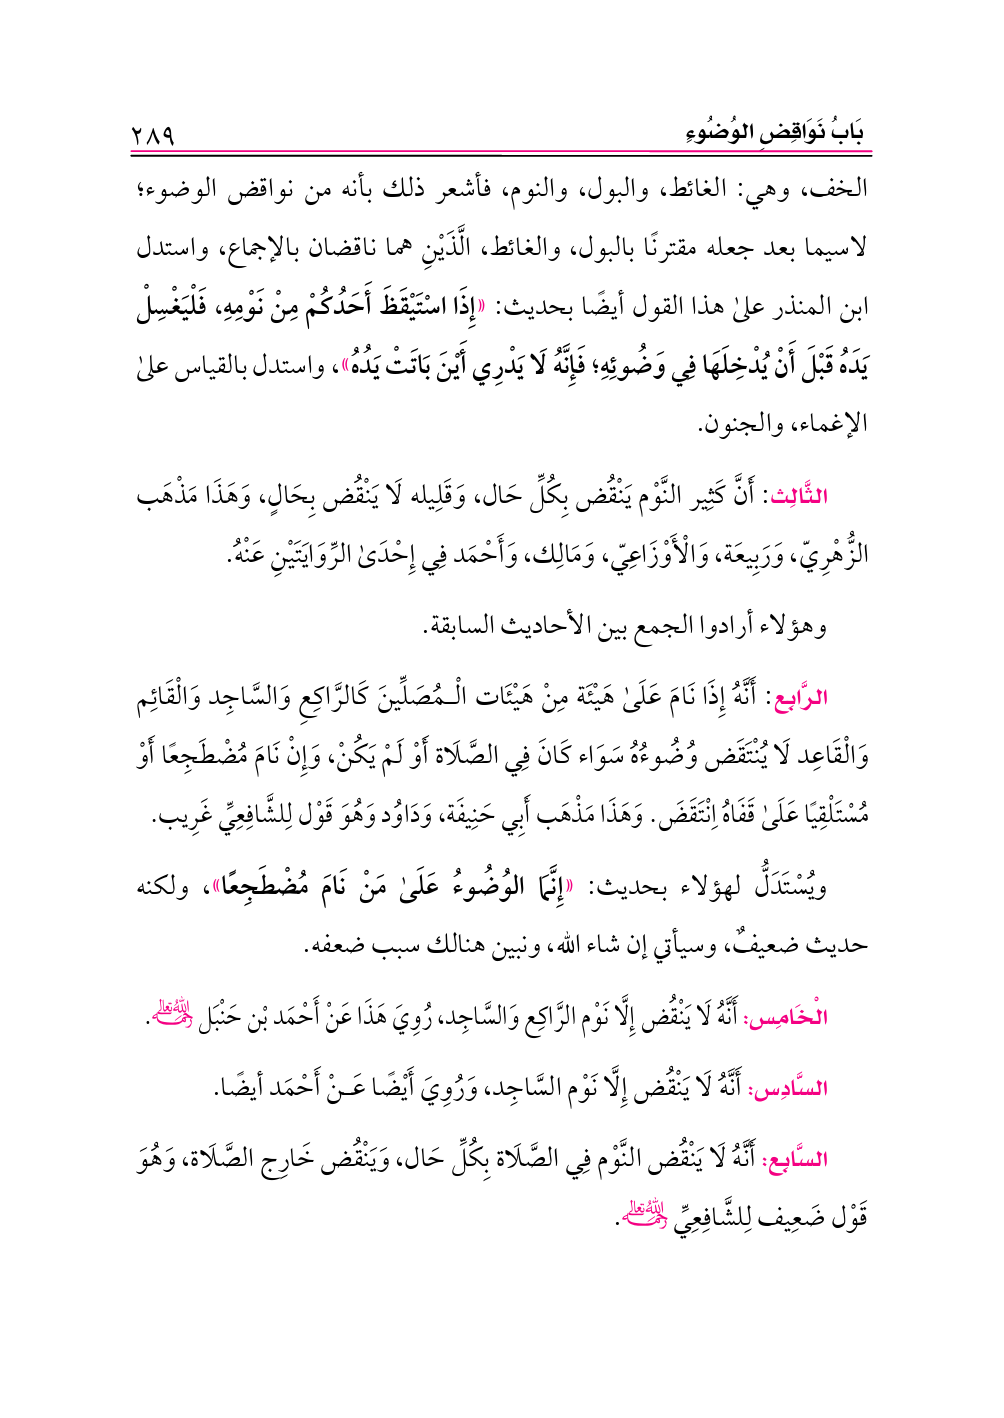 بَابُ نَوَاقِضِ الوُضُوءِ ٢٨٩
الخف، وهي: الغائط، والبول، والنوم، فأشعر ذلك بأنه من نواقض الوضوء؛
لاسيما بعد جعله مقترنًا بالبول، والغائط، الَّذَيْنِ هما ناقضان بالإجماع، واستدل
ابن المنذر علىٰ هذا القول أيضًا بحديث: «إِذَا اسْتَيْقَظَ أَحَدُكُمْ مِنْ نَوْمِهِ، فَلْيَغْسِلْ
يَدَهُ قَبْلَ أَنْ يُدْخِلَهَا فِي وَضُوئِهِ؛ فَإِنَّهُ لَا يَدْرِي أَيْنَ بَاتَتْ يَدُهُ»، واستدل بالقياس علىٰ
الإغماء، والجنون.
الثَّالِث: أَنَّ كَثِير النَّوْم يَنْقُض بِكُلِّ حَال، وَقَلِيله لَا يَنْقُض بِحَالٍ، وَهَذَا مَذْهَب
الزُّهْرِيّ، وَرَبِيعَة، وَالْأَوْزَاعِيّ، وَمَالِك، وَأَحْمَد فِي إِحْدَىٰ الرِّوَايَتَيْنِ عَنْهُ.
وهؤلاء أرادوا الجمع بين الأحاديث السابقة.
الرَّابِع: أَنَّهُ إِذَا نَامَ عَلَىٰ هَيْئَة مِنْ هَيْئَات الْـمُصَلِّينَ كَالرَّاكِعِ وَالسَّاجِد وَالْقَائِم
وَالْقَاعِد لَا يُنْتَقَض وُضُوءُهُ سَوَاء كَانَ فِي الصَّلَاة أَوْ لَمْ يَكُنْ، وَإِنْ نَامَ مُضْطَجِعًا أَوْ
مُسْتَلْقِيًا عَلَىٰ قَفَاهُ اِنْتَقَضَ. وَهَذَا مَذْهَب أَبِي حَنِيفَة، وَدَاوُد وَهُوَ قَوْل لِلشَّافِعِيِّ غَرِيب.
ويُسْتَدَلُّ لهؤلاء بحديث: «إِنَّمَا الوُضُوءُ عَلَىٰ مَنْ نَامَ مُضْطَجِعًا»، ولكنه
حديث ضعيفٌ، وسيأتي إن شاء الله، ونبين هنالك سبب ضعفه.
الْخَامِس: أَنَّهُ لَا يَنْقُض إِلَّا نَوْم الرَّاكِع وَالسَّاجِد، رُوِيَ هَذَا عَنْ أَحْمَد بْن حَنْبَل رَحِمَهُ اللهُ تعالى.
السَّادِس: أَنَّهُ لَا يَنْقُض إِلَّا نَوْم السَّاجِد، وَرُوِيَ أَيْضًا عَـنْ أَحْمَد أيضًا.
السَّابِع: أَنَّهُ لَا يَنْقُض النَّوْم فِي الصَّلَاة بِكُلِّ حَال، وَيَنْقُض خَارِج الصَّلَاة، وَهُوَ
قَوْل ضَعِيف لِلشَّافِعِيِّ رَحِمَهُ اللهُ تعالى.